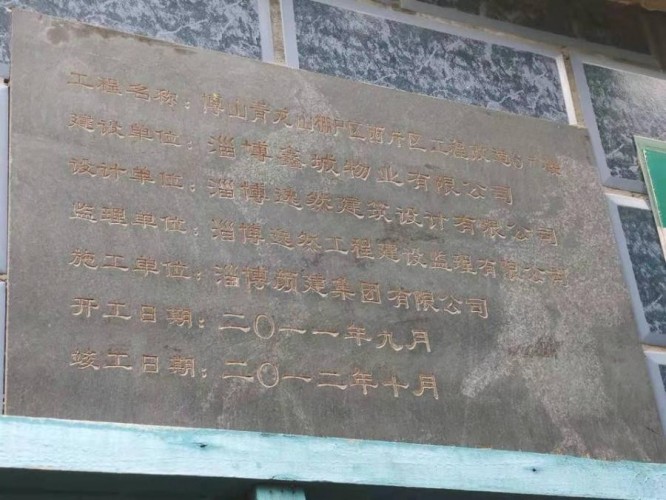 工程名称：博山青龙山棚户区西片区工程
建设单位：淄博鑫城物业有限公司
设计单位：淄博逸然建筑设计有限公司
监理单位：淄博逸然工程建设监理有限公司
施工单位：淄博新建集团有限公司
开工日期：二〇一一年九月
竣工日期：二〇一二年十月